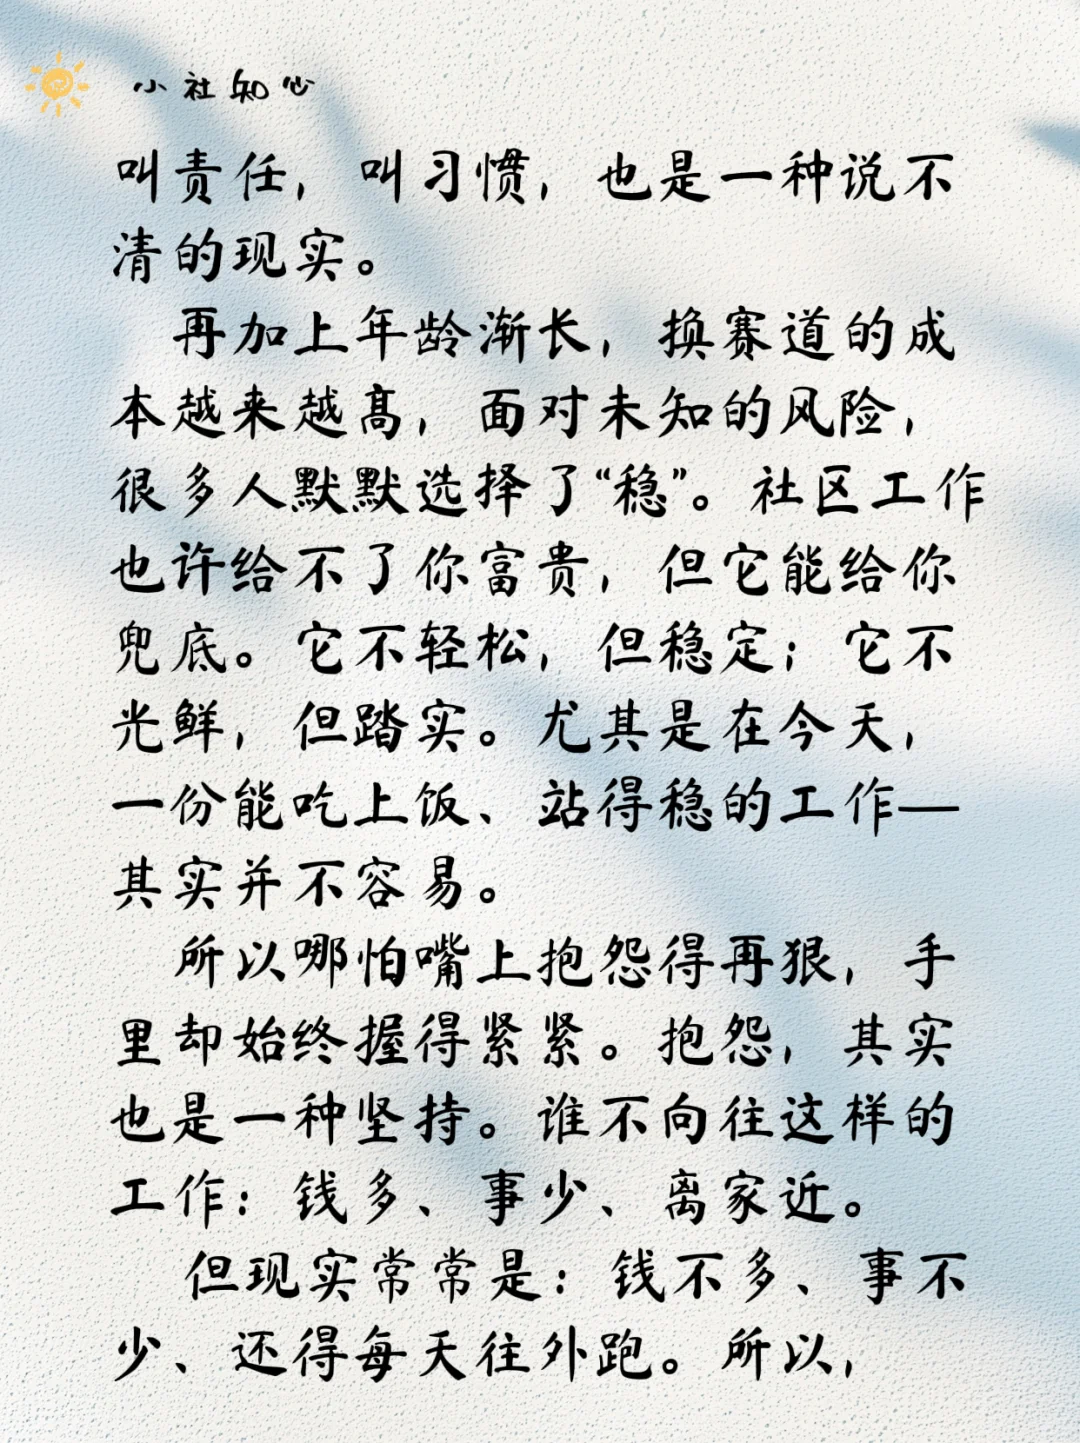 小社知心
叫责任，叫习惯，也是一种说不
清的现实。
再加上年龄渐长，换赛道的成
本越来越高，面对未知的风险，
很多人默默选择了“稳”。社区工作
也许给不了你富贵，但它能给你
兜底。它不轻松，但稳定；它不
光鲜，但踏实。尤其是在今天，
一份能吃上饭、站得稳的工作—
其实并不容易。
所以哪怕嘴上抱怨得再狠，手
里却始终握得紧紧。抱怨，其实
也是一种坚持。谁不向往这样的
工作：钱多、事少、离家近。
但现实常常是：钱不多、事不
少、还得每天往外跑。所以，